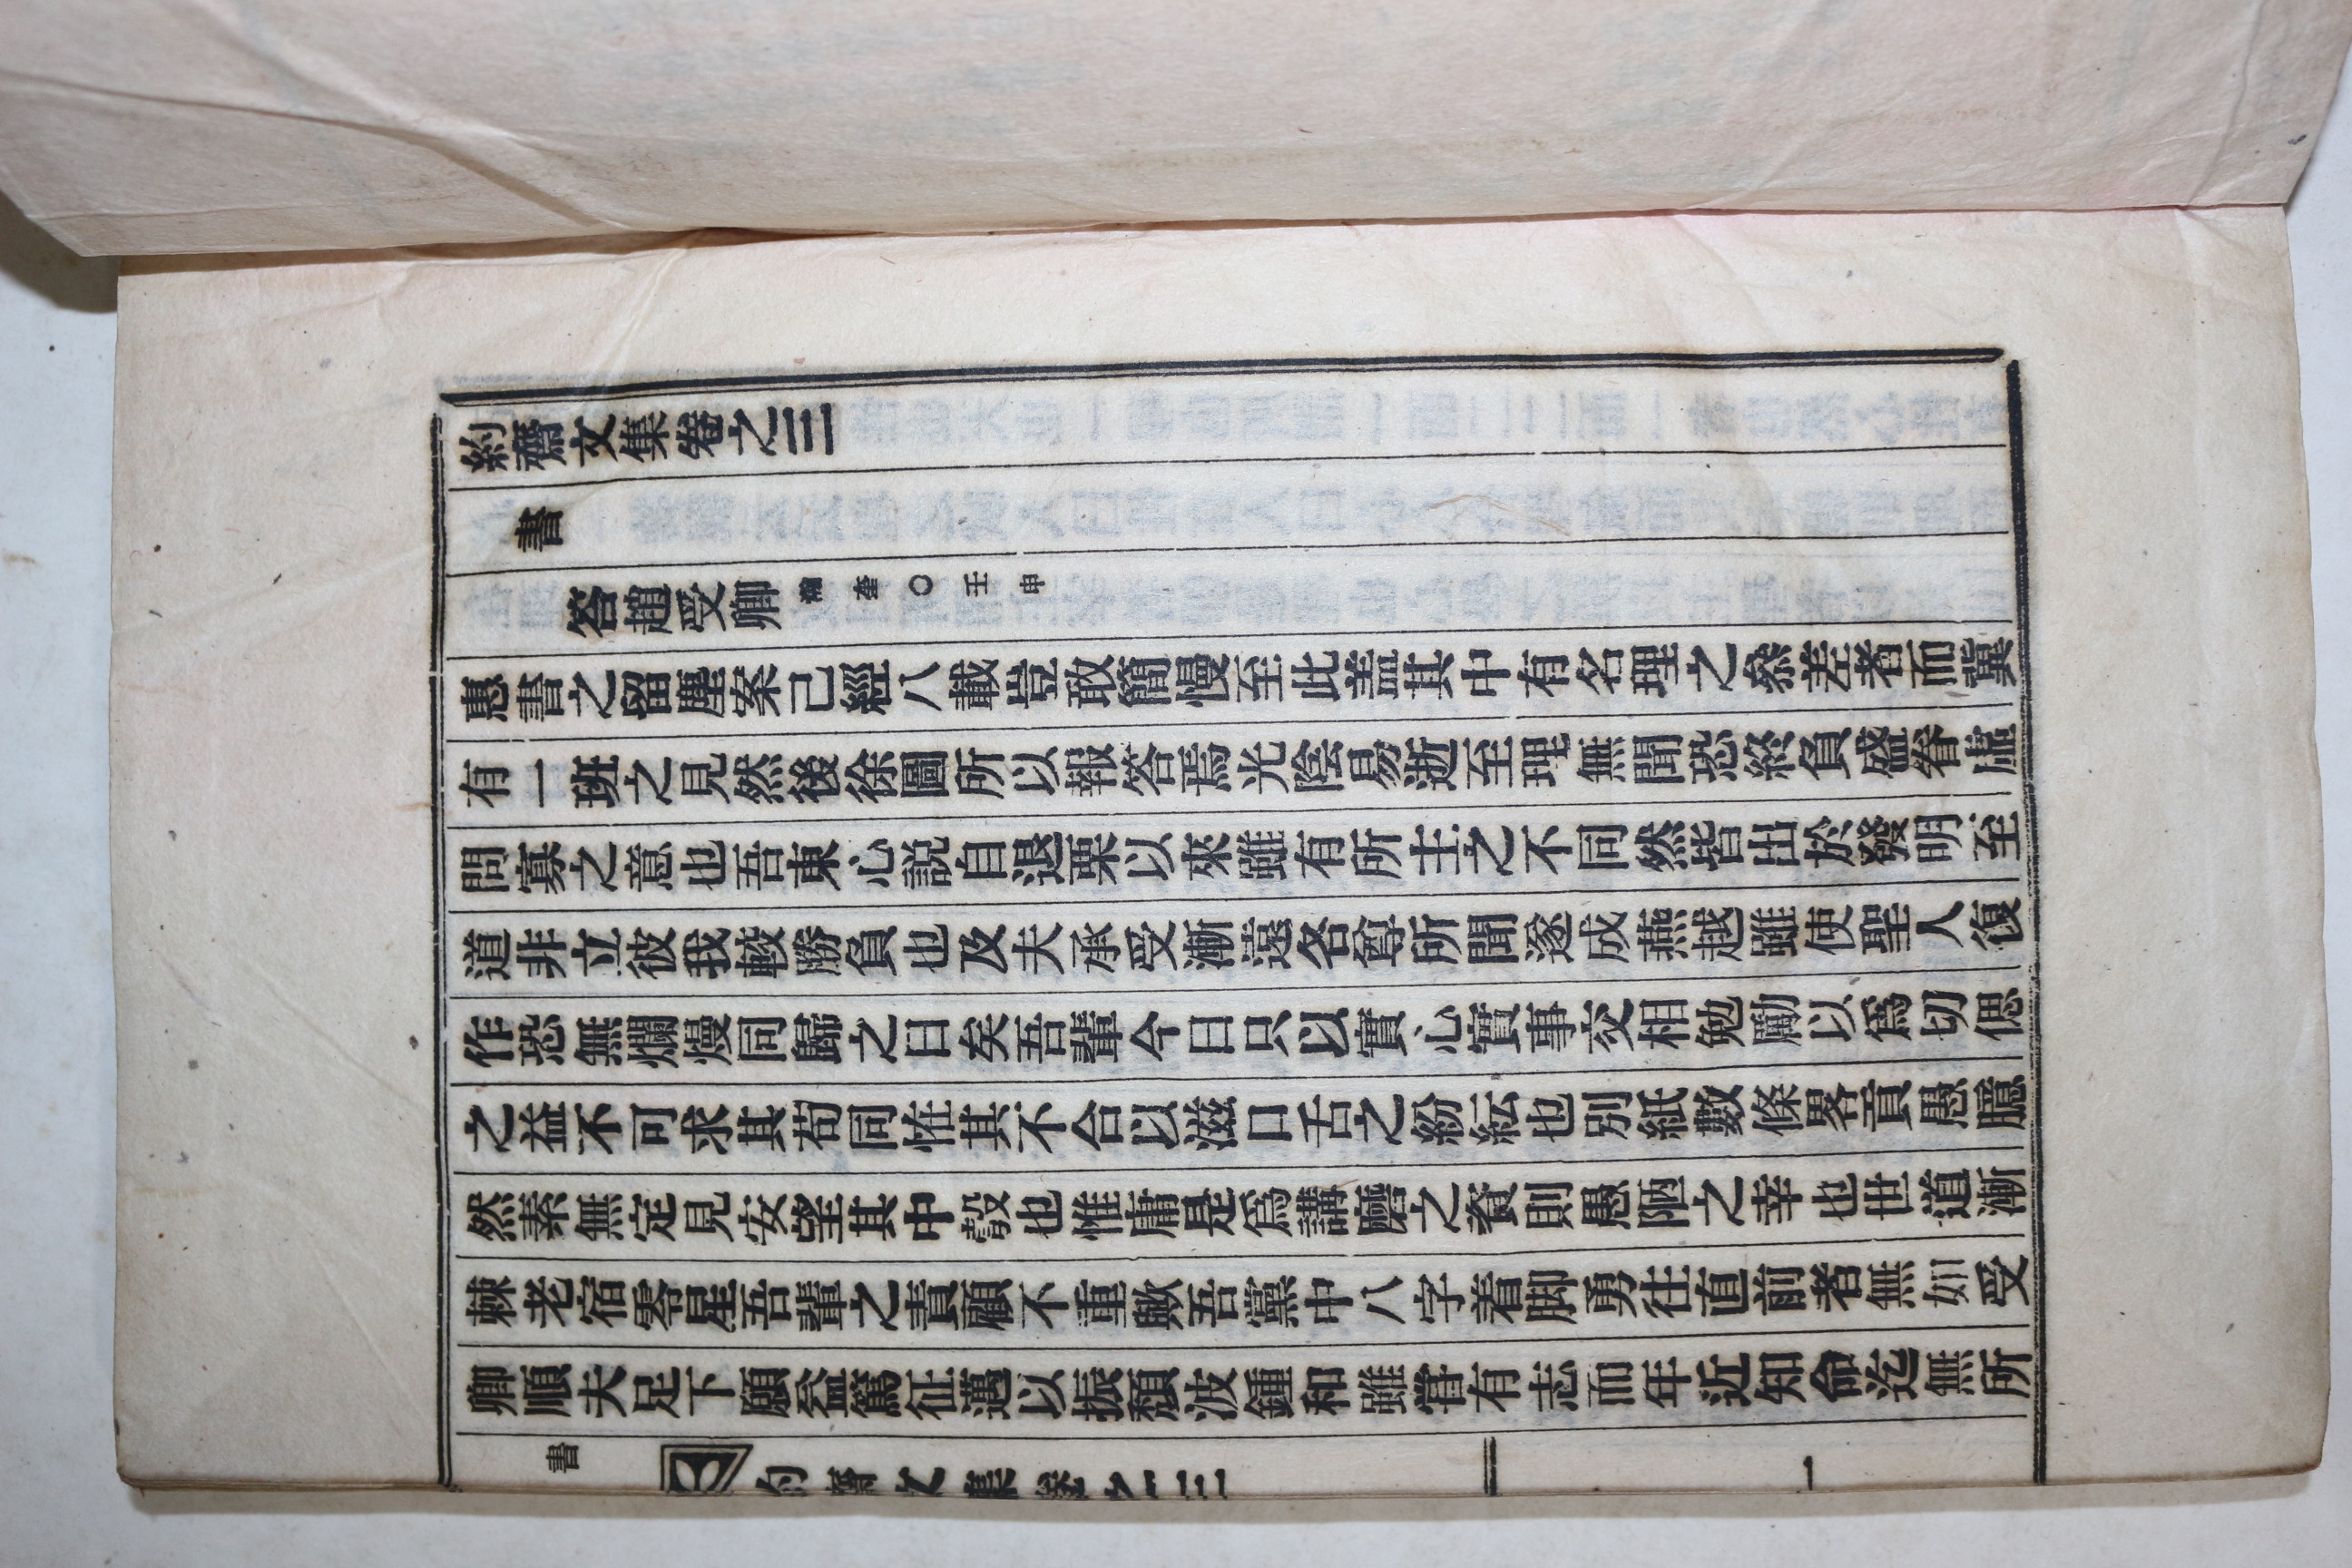 約齋文集卷之三
書
答趙受卿 瀚奎○壬申
惠書之留塵案己經八載豈敢簡慢至此盖其中有名理之叅差者而冀
有一班之見然後徐圖所以報答焉光陰易逝至理無聞恐終負盛眷虛
問寡之意也吾東心説自退栗以來雖有所主之不同然皆出於發明至
道非立彼我較勝負也及夫承受漸遠各尊所聞遂成燕越雖使聖人復
作恐無爛熳同歸之日矣吾輩今日只以實心實事交相勉勵以爲切偲
之益不可求其苟同恠其不合以滋口舌之紛紜也別紙數條畧貢愚臆
然素無定見安望其中彀也惟庸是爲講磨之資則愚陋之幸也世道漸
棘老宿零星吾輩之責顧不重歟吾黨中八字着脚勇往直前者無如受
卿順夫足下願益篤征邁以振頹波鍾和雖甞有志而年近知命迄無所
書
約齋文集卷之三
一